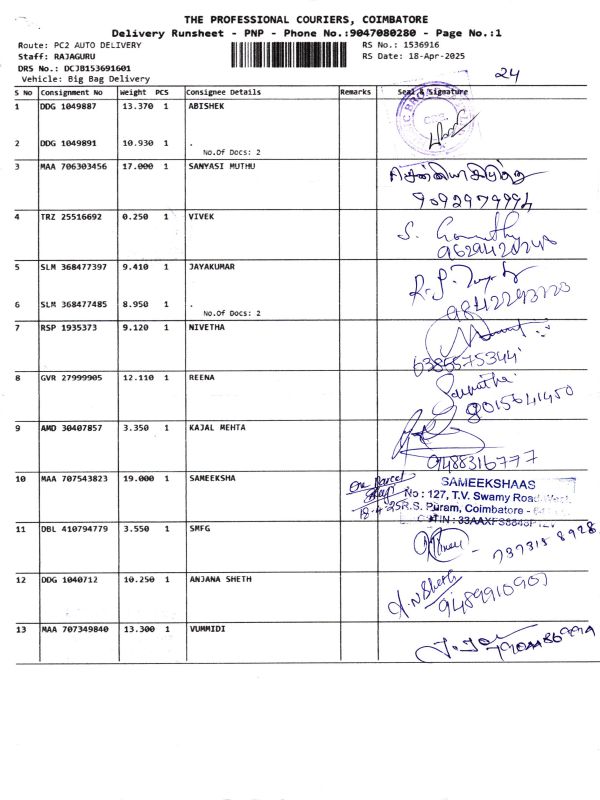 THE PROFESSIONAL COURIERS, COIMBATORE
Delivery Runsheet - PNP - Phone No.:9047080280 - Page No.:1
Route: PC2 AUTO DELIVERY RS No.: 1536916
Staff: RAJAGURU RS Date: 18-Apr-2025
DRS No.: DCJB153691601
Vehicle: Big Bag Delivery
24
S No Consignment No Weight PCS Consignee Details Remarks Seal & Signature
1 DDG 1049887 13.370 1 ABISHEK
2 DDG 1049891 10.930 1 .
No.Of Docs: 2
3 MAA 706303456 17.000 1 SANYASI MUTHU
9092979994
4 TRZ 25516692 0.250 1 VIVEK
S.
5 SLM 368477397 9.410 1 JAYAKUMAR
6 SLM 368477485 8.950 1 .
No.Of Docs: 2
9842293720
7 RSP 1935373 9.120 1 NIVETHA
6385575344
8 GVR 27999905 12.110 1 REENA
8015641450
9 AMD 30407857 3.350 1 KAJAL MEHTA
9488316777
10 MAA 707543823 19.000 1 SAMEEKSHA
One Parcel
18-4-25
SAMEEKSHAAS
No : 127, T.V. Swamy Road, West,
R.S. Puram, Coimbatore -
11 DBL 410794779 3.550 1 SMFG
7373158928
12 DDG 1040712 10.250 1 ANJANA SHETH
N Sheth
9489910907
13 MAA 707349840 13.300 1 VUMMIDI